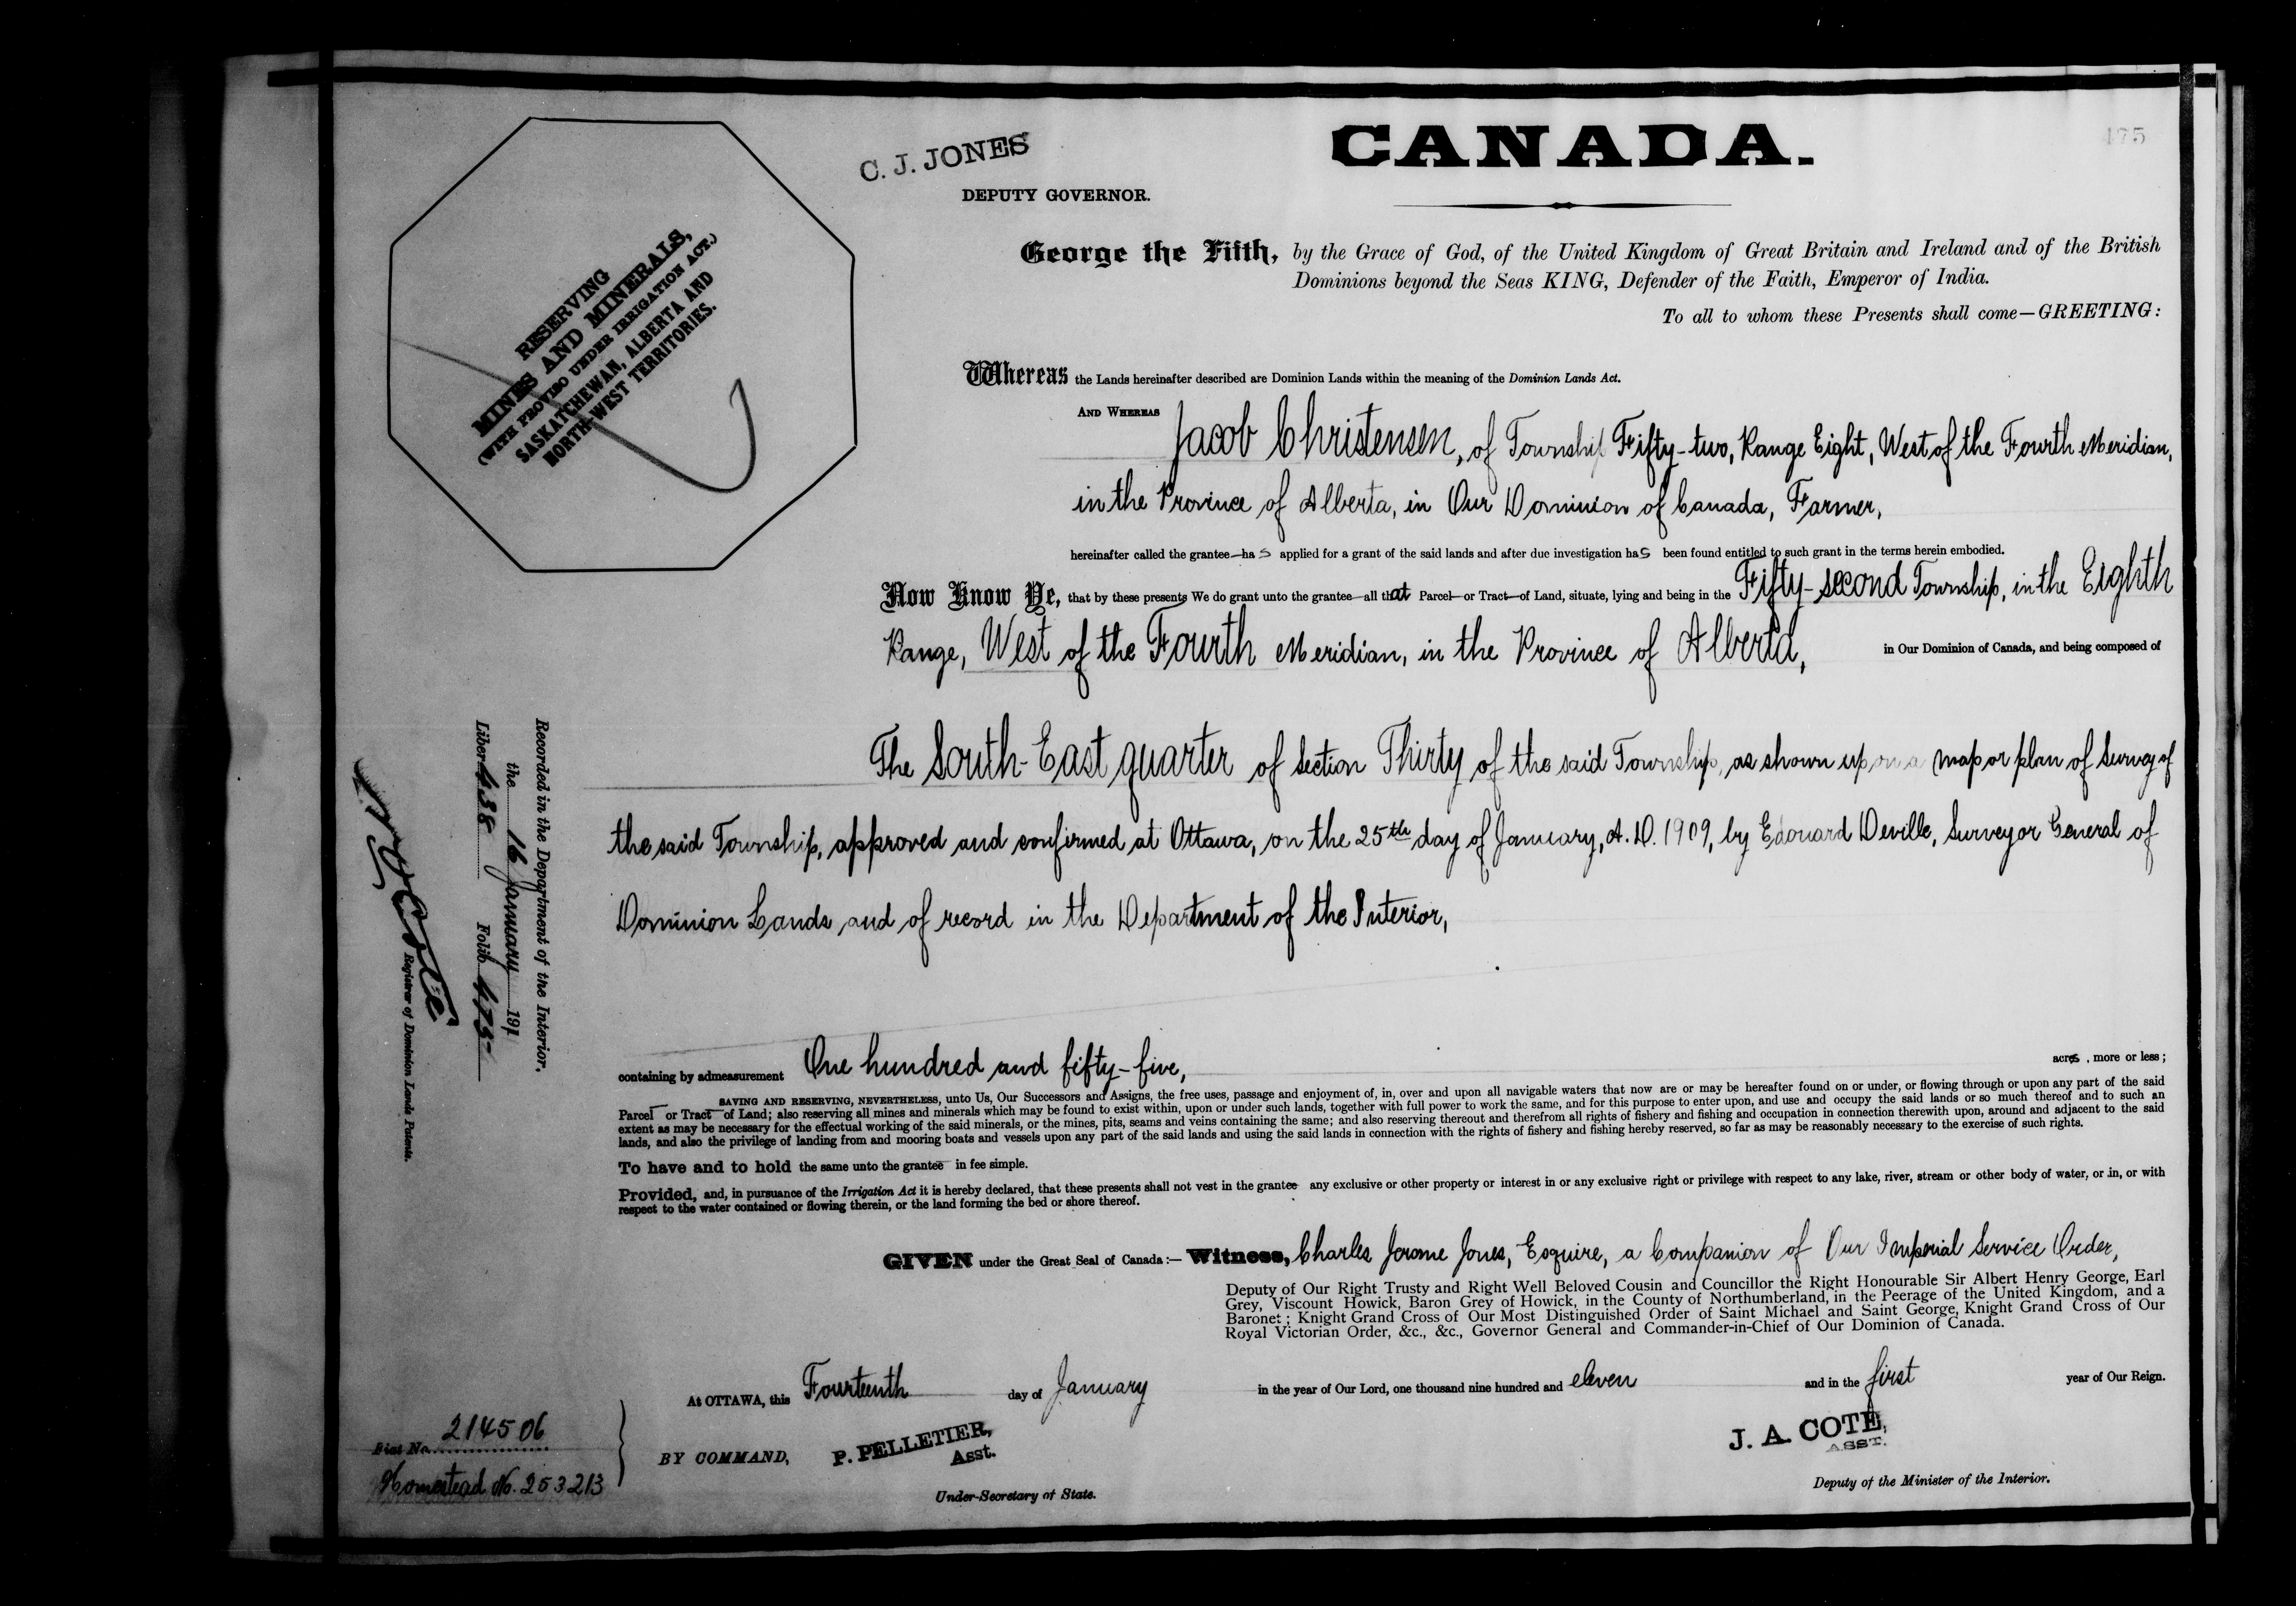 475
CANADA.
C. J. JONES
DEPUTY GOVERNOR.
RESERVING
MINES AND MINERALS,
(WITH PROVISO UNDER IRRIGATION ACT.)
SASKATCHEWAN, ALBERTA AND
NORTH-WEST TERRITORIES.
George the Fifth, by the Grace of God, of the United Kingdom of Great Britain and Ireland and of the British
Dominions beyond the Seas KING, Defender of the Faith, Emperor of India.
To all to whom these Presents shall come—GREETING:
Whereas the Lands hereinafter described are Dominion Lands within the meaning of the Dominion Lands Act.
AND WHEREAS Jacob Christensen, of Township Fifty-two, Range Eight, West of the Fourth Meridian,
in the Province of Alberta, in Our Dominion of Canada, Farmer,
hereinafter called the grantee—has applied for a grant of the said lands and after due investigation has been found entitled to such grant in the terms herein embodied.
Now Know Ye, that by these presents We do grant unto the grantee—all that Parcel—or Tract—of Land, situate, lying and being in the Fifty-second Township, in the Eighth
Range, West of the Fourth Meridian, in the Province of Alberta, in Our Dominion of Canada, and being composed of
The South-East quarter of Section Thirty of the said Township, as shown upon a map or plan of Survey of
the said Township, approved and confirmed at Ottawa, on the 25th day of January, A. D. 1909, by Edouard Deville, Surveyor General of
Dominion Lands and of record in the Department of the Interior,
containing by admeasurement One hundred and fifty-five, acres, more or less;
SAVING AND RESERVING, NEVERTHELESS, unto Us, Our Successors and Assigns, the free uses, passage and enjoyment of, in, over and upon all navigable waters that now are or may be hereafter found on or under, or flowing through or upon any part of the said
Parcel—or Tract—of Land; also reserving all mines and minerals which may be found to exist within, upon or under such lands, together with full power to work the same, and for this purpose to enter upon, and use and occupy the said lands or so much thereof and to such an
extent as may be necessary for the effectual working of the said minerals, or the mines, pits, seams and veins containing the same; and also reserving thereout and therefrom all rights of fishery and fishing and occupation in connection therewith upon, around and adjacent to the said
lands, and also the privilege of landing from and mooring boats and vessels upon any part of the said lands and using the said lands in connection with the rights of fishery and fishing hereby reserved, so far as may be reasonably necessary to the exercise of such rights.
To have and to hold the same unto the grantee—in fee simple.
Provided, and, in pursuance of the Irrigation Act it is hereby declared, that these presents shall not vest in the grantee—any exclusive or other property or interest in or any exclusive right or privilege with respect to any lake, river, stream or other body of water, or in, or with
respect to the water contained or flowing therein, or the land forming the bed or shore thereof.
GIVEN under the Great Seal of Canada:— Witness, Charles Jerome Jones, Esquire, a Companion of Our Imperial Service Order,
Deputy of Our Right Trusty and Right Well Beloved Cousin and Councillor the Right Honourable Sir Albert Henry George, Earl
Grey, Viscount Howick, Baron Grey of Howick, in the County of Northumberland, in the Peerage of the United Kingdom, and a
Baronet; Knight Grand Cross of Our Most Distinguished Order of Saint Michael and Saint George, Knight Grand Cross of Our
Royal Victorian Order, &c., &c., Governor General and Commander-in-Chief of Our Dominion of Canada.
At OTTAWA, this Fourteenth day of January in the year of Our Lord, one thousand nine hundred and eleven and in the first year of Our Reign.
BY COMMAND,
P. PELLETIER,
Asst.
Under-Secretary of State.
J. A. COTE,
ASST.
Deputy of the Minister of the Interior.
Recorded in the Department of the Interior,
the 16 January 1911
Liber 438 Folio 475
Registrar of Dominion Lands Patents.
Fiat No. 214506
Homestead No. 253213